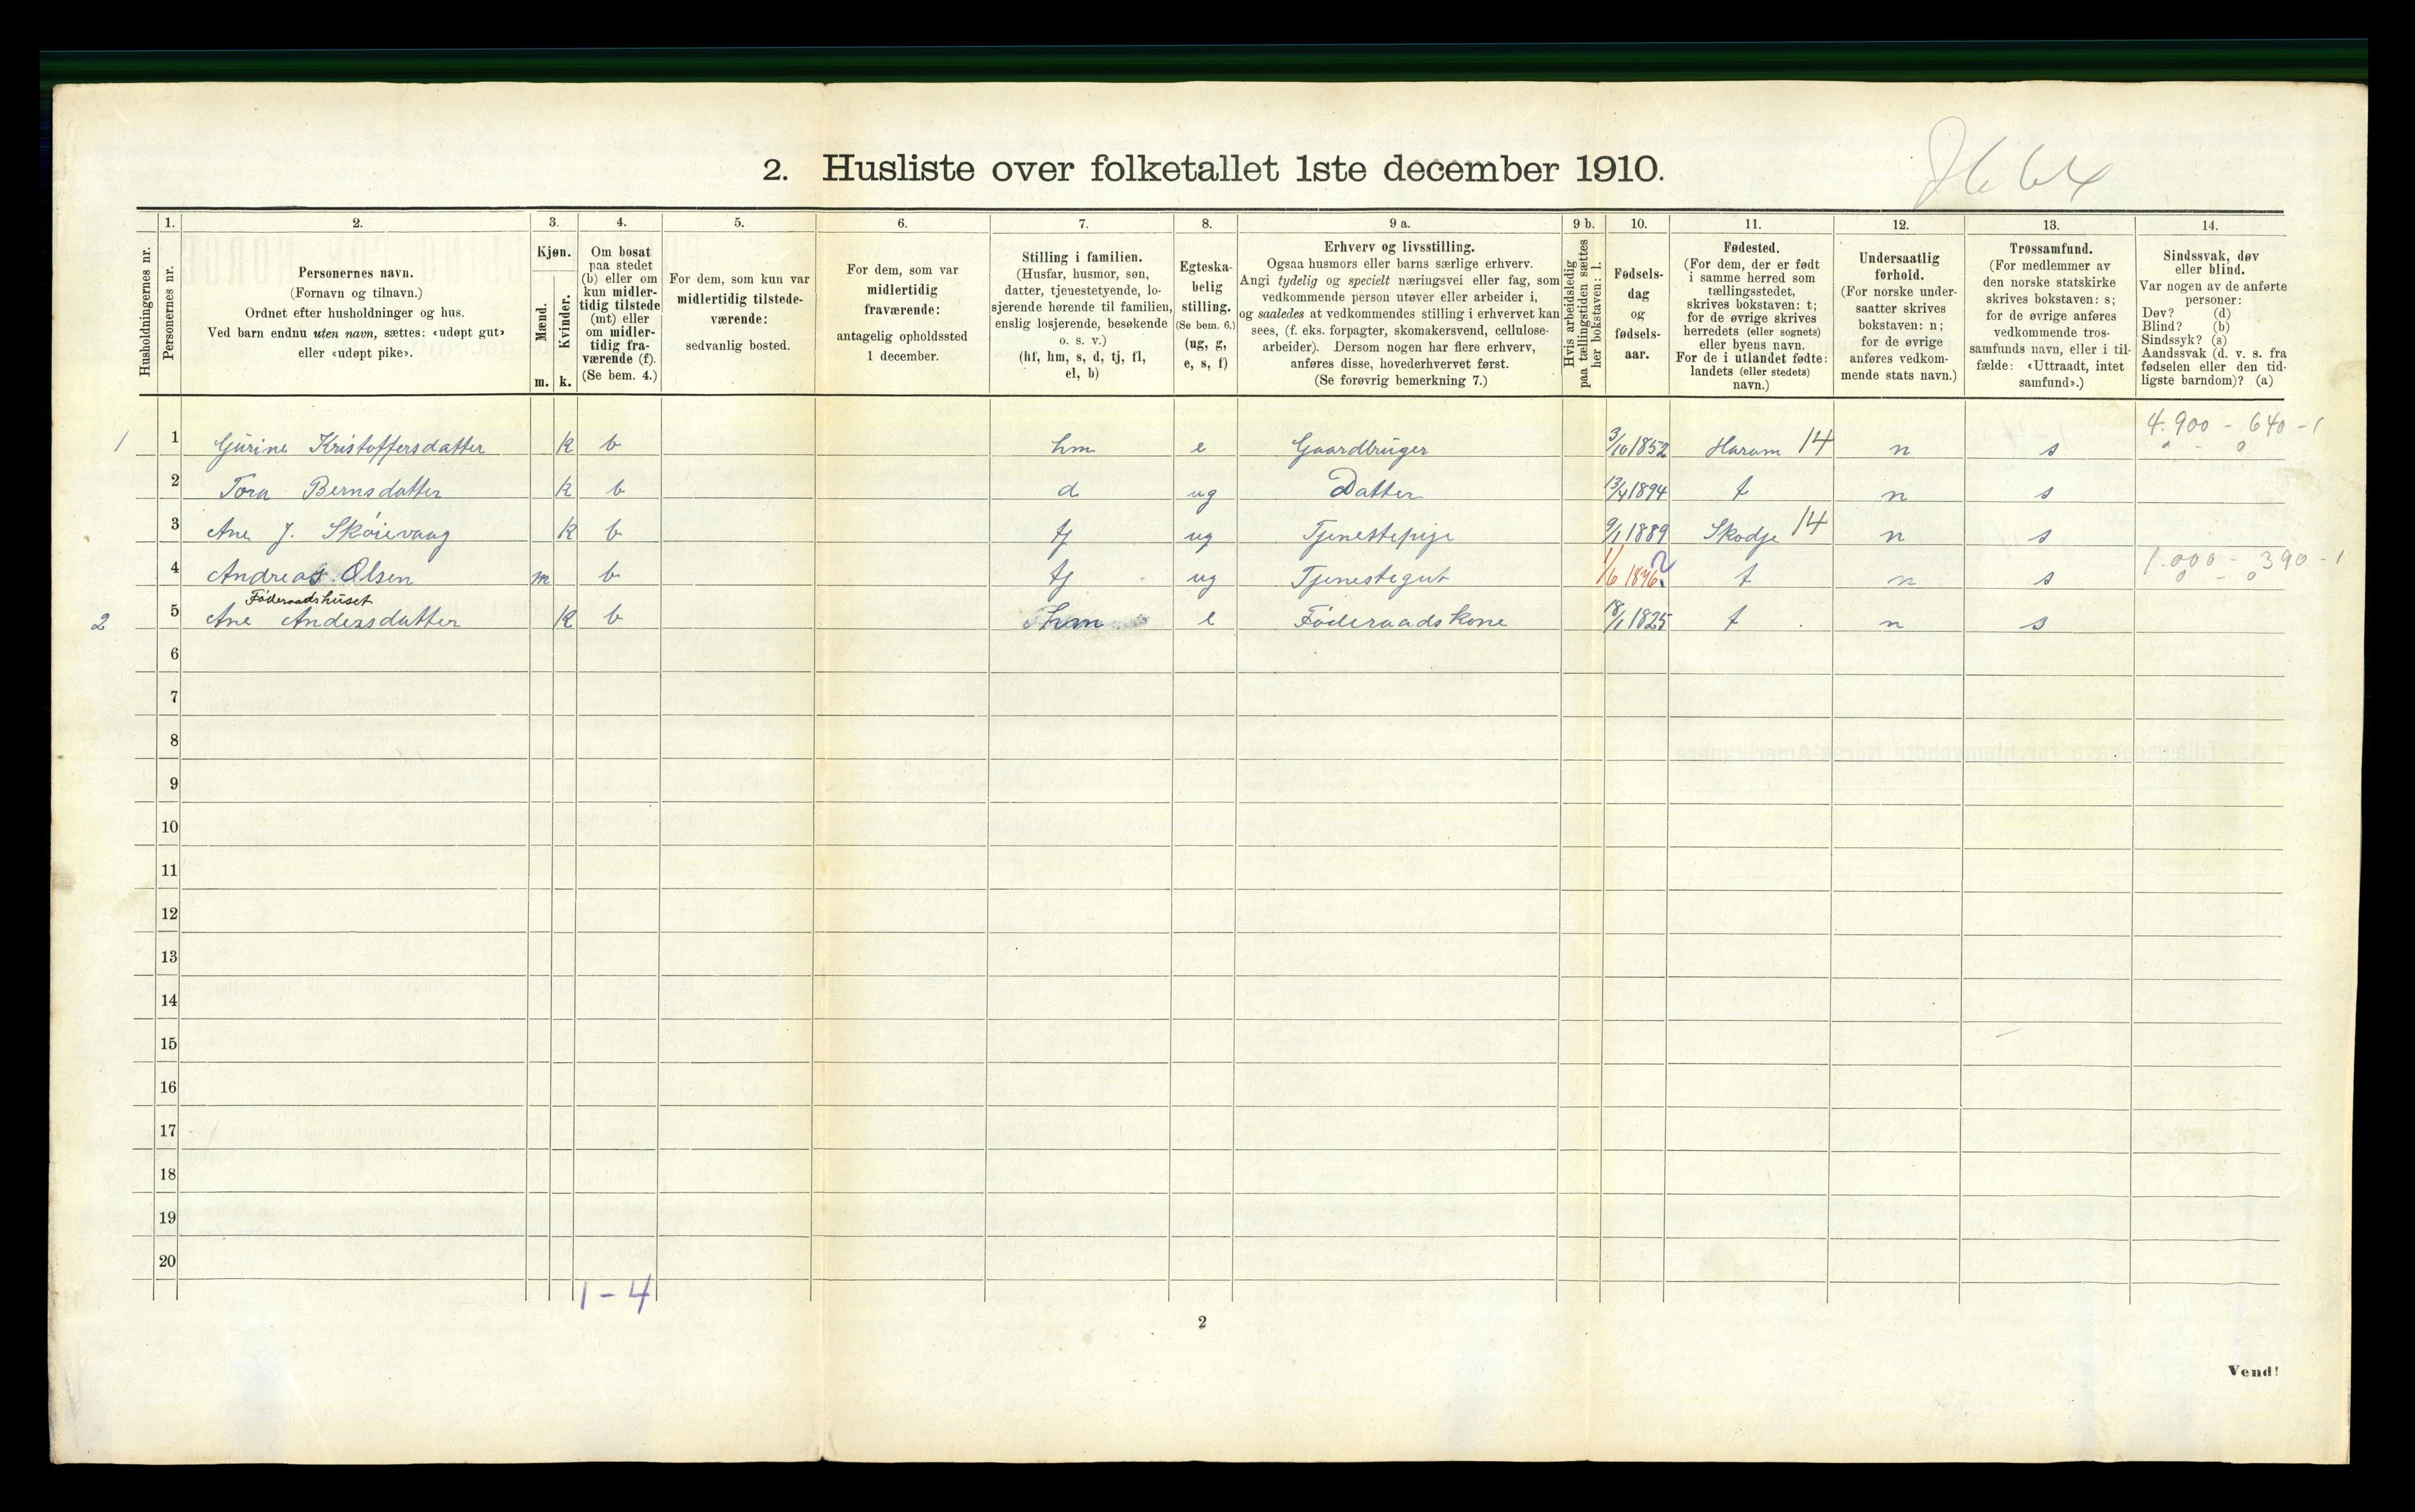 2. Husliste over folketallet 1ste december 1910.
Husholdningernes nr.
1. Personernes nr.
2. Personernes navn. (Fornavn og tilnavn.) Ordnet efter husholdninger og hus. Ved barn endnu uten navn, sættes: «udøpt gut» eller «udøpt pike».
3. Kjøn. Mænd. m. Kvinder. k.
4. Om bosat paa stedet (b) eller om kun midlertidig tilstede (mt) eller om midlertidig fraværende (f). (Se bem. 4.)
5. For dem, som kun var midlertidig tilstedeværende: sedvanlig bosted.
6. For dem, som var midlertidig fraværende: antagelig opholdssted 1 december.
7. Stilling i familien. (Husfar, husmor, søn, datter, tjenestetyende, losjerende hørende til familien, enslig losjerende, besøkende o. s. v.) (hf, hm, s, d, tj, fl, el, b)
8. Egteskabelig stilling. (Se bem. 6.) (ug, g, e, s, f)
9 a. Erhverv og livsstilling. Ogsaa husmors eller barns særlige erhverv. Angi tydelig og specielt næringsvei eller fag, som vedkommende person utøver eller arbeider i, og saaledes at vedkommendes stilling i erhvervet kan sees, (f. eks. forpagter, skomakersvend, cellulosearbeider). Dersom nogen har flere erhverv, anføres disse, hovederhvervet først. (Se forøvrig bemerkning 7.)
9 b. Hvis arbeidsledig paa tællingstiden sættes her bokstaven: l.
10. Fødselsdag og fødselsaar.
11. Fødested. (For dem, der er født i samme herred som tællingsstedet, skrives bokstaven: t; for de øvrige skrives herredets (eller sognets) eller byens navn. For de i utlandet fødte: landets (eller stedets) navn.)
12. Undersaatlig forhold. (For norske undersaatter skrives bokstaven: n; for de øvrige anføres vedkommende stats navn.)
13. Trossamfund. (For medlemmer av den norske statskirke skrives bokstaven: s; for de øvrige anføres vedkommende trossamfunds navn, eller i tilfælde: «Uttraadt, intet samfund».)
14. Sindssvak, døv eller blind. Var nogen av de anførte personer: Døv? (d) Blind? (b) Sindssyk? (s) Aandssvak (d. v. s. fra fødselen eller den tidligste barndom)? (a)
4.900 - 640 - 1
1 1 Gurine Kristoffersdatter k b hm e Gaardbruger 3/10 1852 Haram 14 n s
2 Tora Bernsdatter k b d ug Datter 13/4 1894 t n s
3 Ane J. Skoievaag k b tj ug Tjenestepige 9/1 1889 Skodje 14 n s
1.000 - 390 - 1
4 Andreas Olsen m b tj ug Tjenestegut 1/6 1896? t n s
Føderaadshuset
2 5 Ane Andersdatter k b hm e Føderaadskone 18/1 1825 t n s
6
7
8
9
10
11
12
13
14
15
16
17
18
19
20
1 - 4
2
Vend!